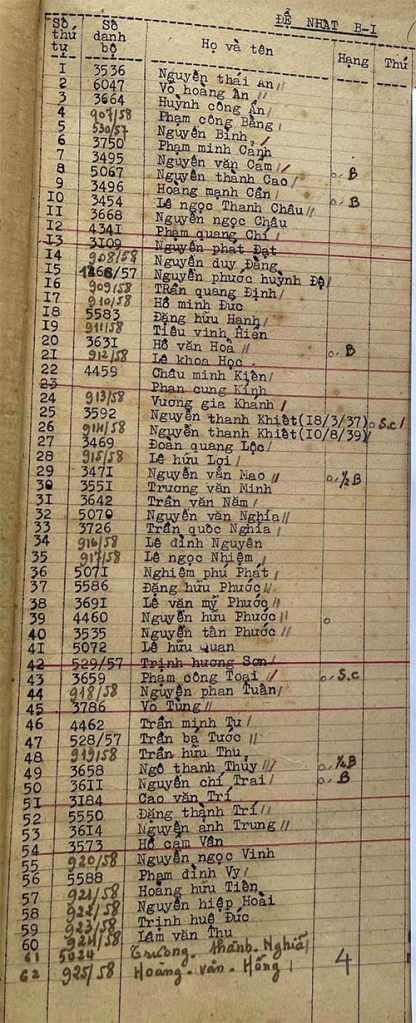 ĐỆ NHẤT B-I
Số thứ tự Số danh bộ Họ và tên Hạng Thứ
I 3536 Nguyễn thái Ân //
2 6047 Võ hoàng Ân //
3 3664 Huỳnh công Ẩn /
4 907/58 Phạm công Bằng /
5 530/57 Nguyễn Bình /
6 3750 Phạm minh Cảnh
7 3495 Nguyễn văn Cẩm /
8 5067 Nguyễn thành Cao / o B
9 3496 Hoàng mạnh Cần /
IO 3454 Lê ngọc Thanh Châu // o B
II 3668 Nguyễn ngọc Châu
I2 434I Phạm quang Chí /
I3 3I09 Nguyễn phát Đạt
I4 908/58 Nguyễn duy Đằng
I5 1268/57 Nguyễn phước huỳnh Đệ /
I6 909/58 TRần quang Định /
I7 910/58 Hồ minh Đức
I8 5583 Đặng hữu Hạnh /
I9 911/58 Tiêu vinh Hiển
20 363I Hồ văn Hoà //
2I 912/58 Lê khoa Học o B
22 4459 Châu minh Kiên /
23 Phan cung Kính
24 913/58 Vương gia Khánh /
25 3592 Nguyễn thanh Khiết (I8/3/37) o S.c /
26 914/58 Nguyễn thanh Khiết (IO/8/39)
27 3469 Đoàn quang Lộc /
28 915/58 Lê hữu Lợi /
29 347I Nguyễn văn Mao // o ½B
30 355I Trương văn Minh
3I 3642 Trần văn Năm /
32 5070 Nguyễn văn Nghĩa //
33 3726 Trần quốc Nghĩa /
34 916/58 Lê đình Nguyên
35 917/58 Lê ngọc Nhiệm /
36 507I Nghiêm phú Phát /
37 5586 Đặng hữu Phước //
38 369I Lê văn mỹ Phước //
39 4460 Nguyễn hữu Phước // o
40 3535 Nguyễn tấn Phước //
4I 5072 Lê hữu quan
42 529/57 Trịnh hương Sơn /
43 3659 Phạm công Toại // o S.c
44 918/58 Nguyễn phan Tuấn /
45 3786 Võ Tùng //
46 4462 Trần minh Tụ /
47 528/57 Trần bá Tước //
48 919/58 Trần hữu Thu
49 3658 Ngô thanh Thủy // o ½B
50 36II Nguyễn chí Trai / o B
5I 3I84 Cao văn Trí
52 5550 Đặng thành Trí //
53 36I4 Nguyễn anh Trung //
54 3573 Hồ cẩm Vân
55 920/58 Nguyễn ngọc Vinh
56 5588 Phạm đình Vy /
57 921/58 Hoàng hữu Tiên
58 922/58 Nguyễn hiệp Hoài
59 923/58 Trịnh huệ Đức
60 924/58 Lâm văn Thu
61 5024 Trương thành Nghĩa /
62 925/58 Hoàng văn Hồng / 4